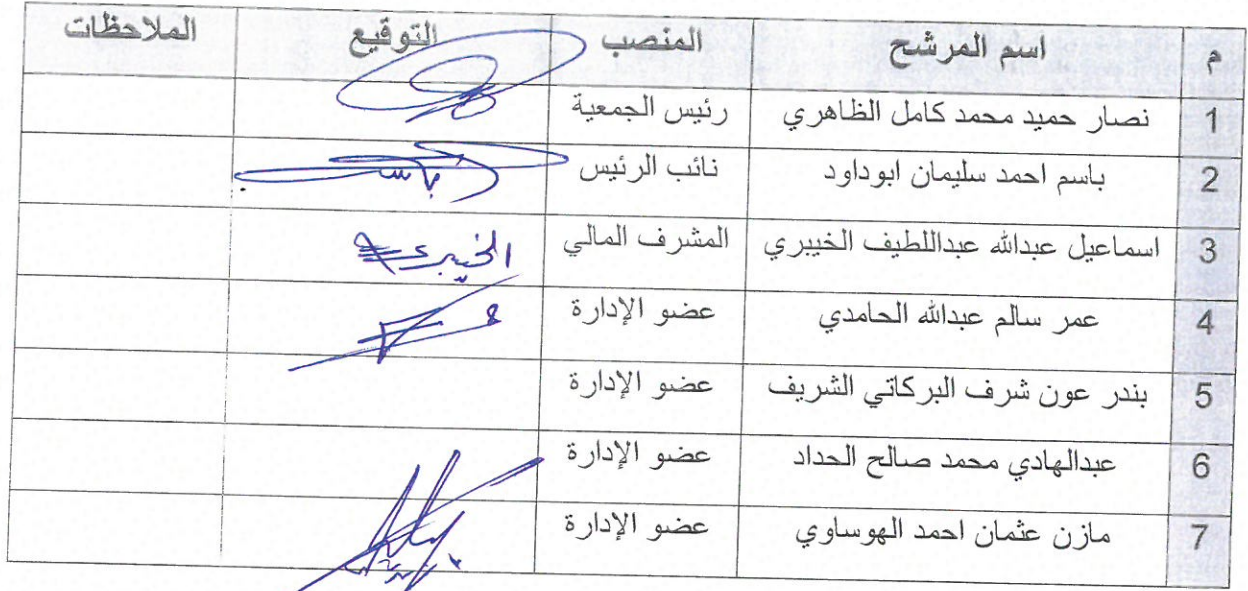 م اسم المرشح المنصب التوقيع الملاحظات
1 نصار حميد محمد كامل الظاهري رئيس الجمعية
2 باسم احمد سليمان ابوداود نائب الرئيس باسم
3 اسماعيل عبدالله عبداللطيف الخييري المشرف المالي الخيبري
4 عمر سالم عبدالله الحامدي عضو الإدارة
5 بندر عون شرف البركاتي الشريف عضو الإدارة
6 عبدالهادي محمد صالح الحداد عضو الإدارة
7 مازن عثمان احمد الهوساوي عضو الإدارة